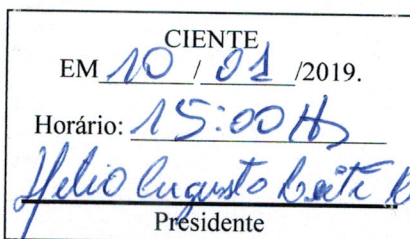 CIENTE
EM 10 / 01 /2019.
Horário: 15:00 Hs
Helio Augusto Leite
Presidente